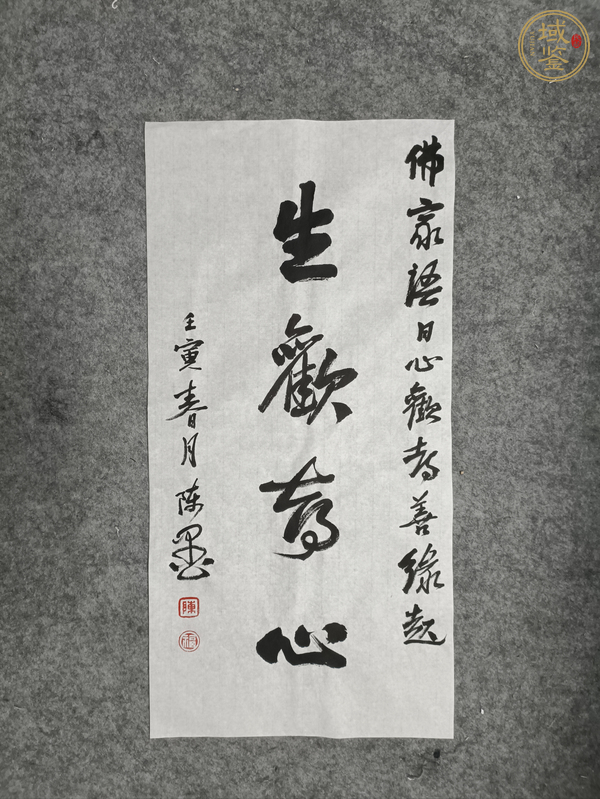 佛家語曰心歡喜善緣起
生歡喜心
壬寅春月陈墨
陳
域鉴